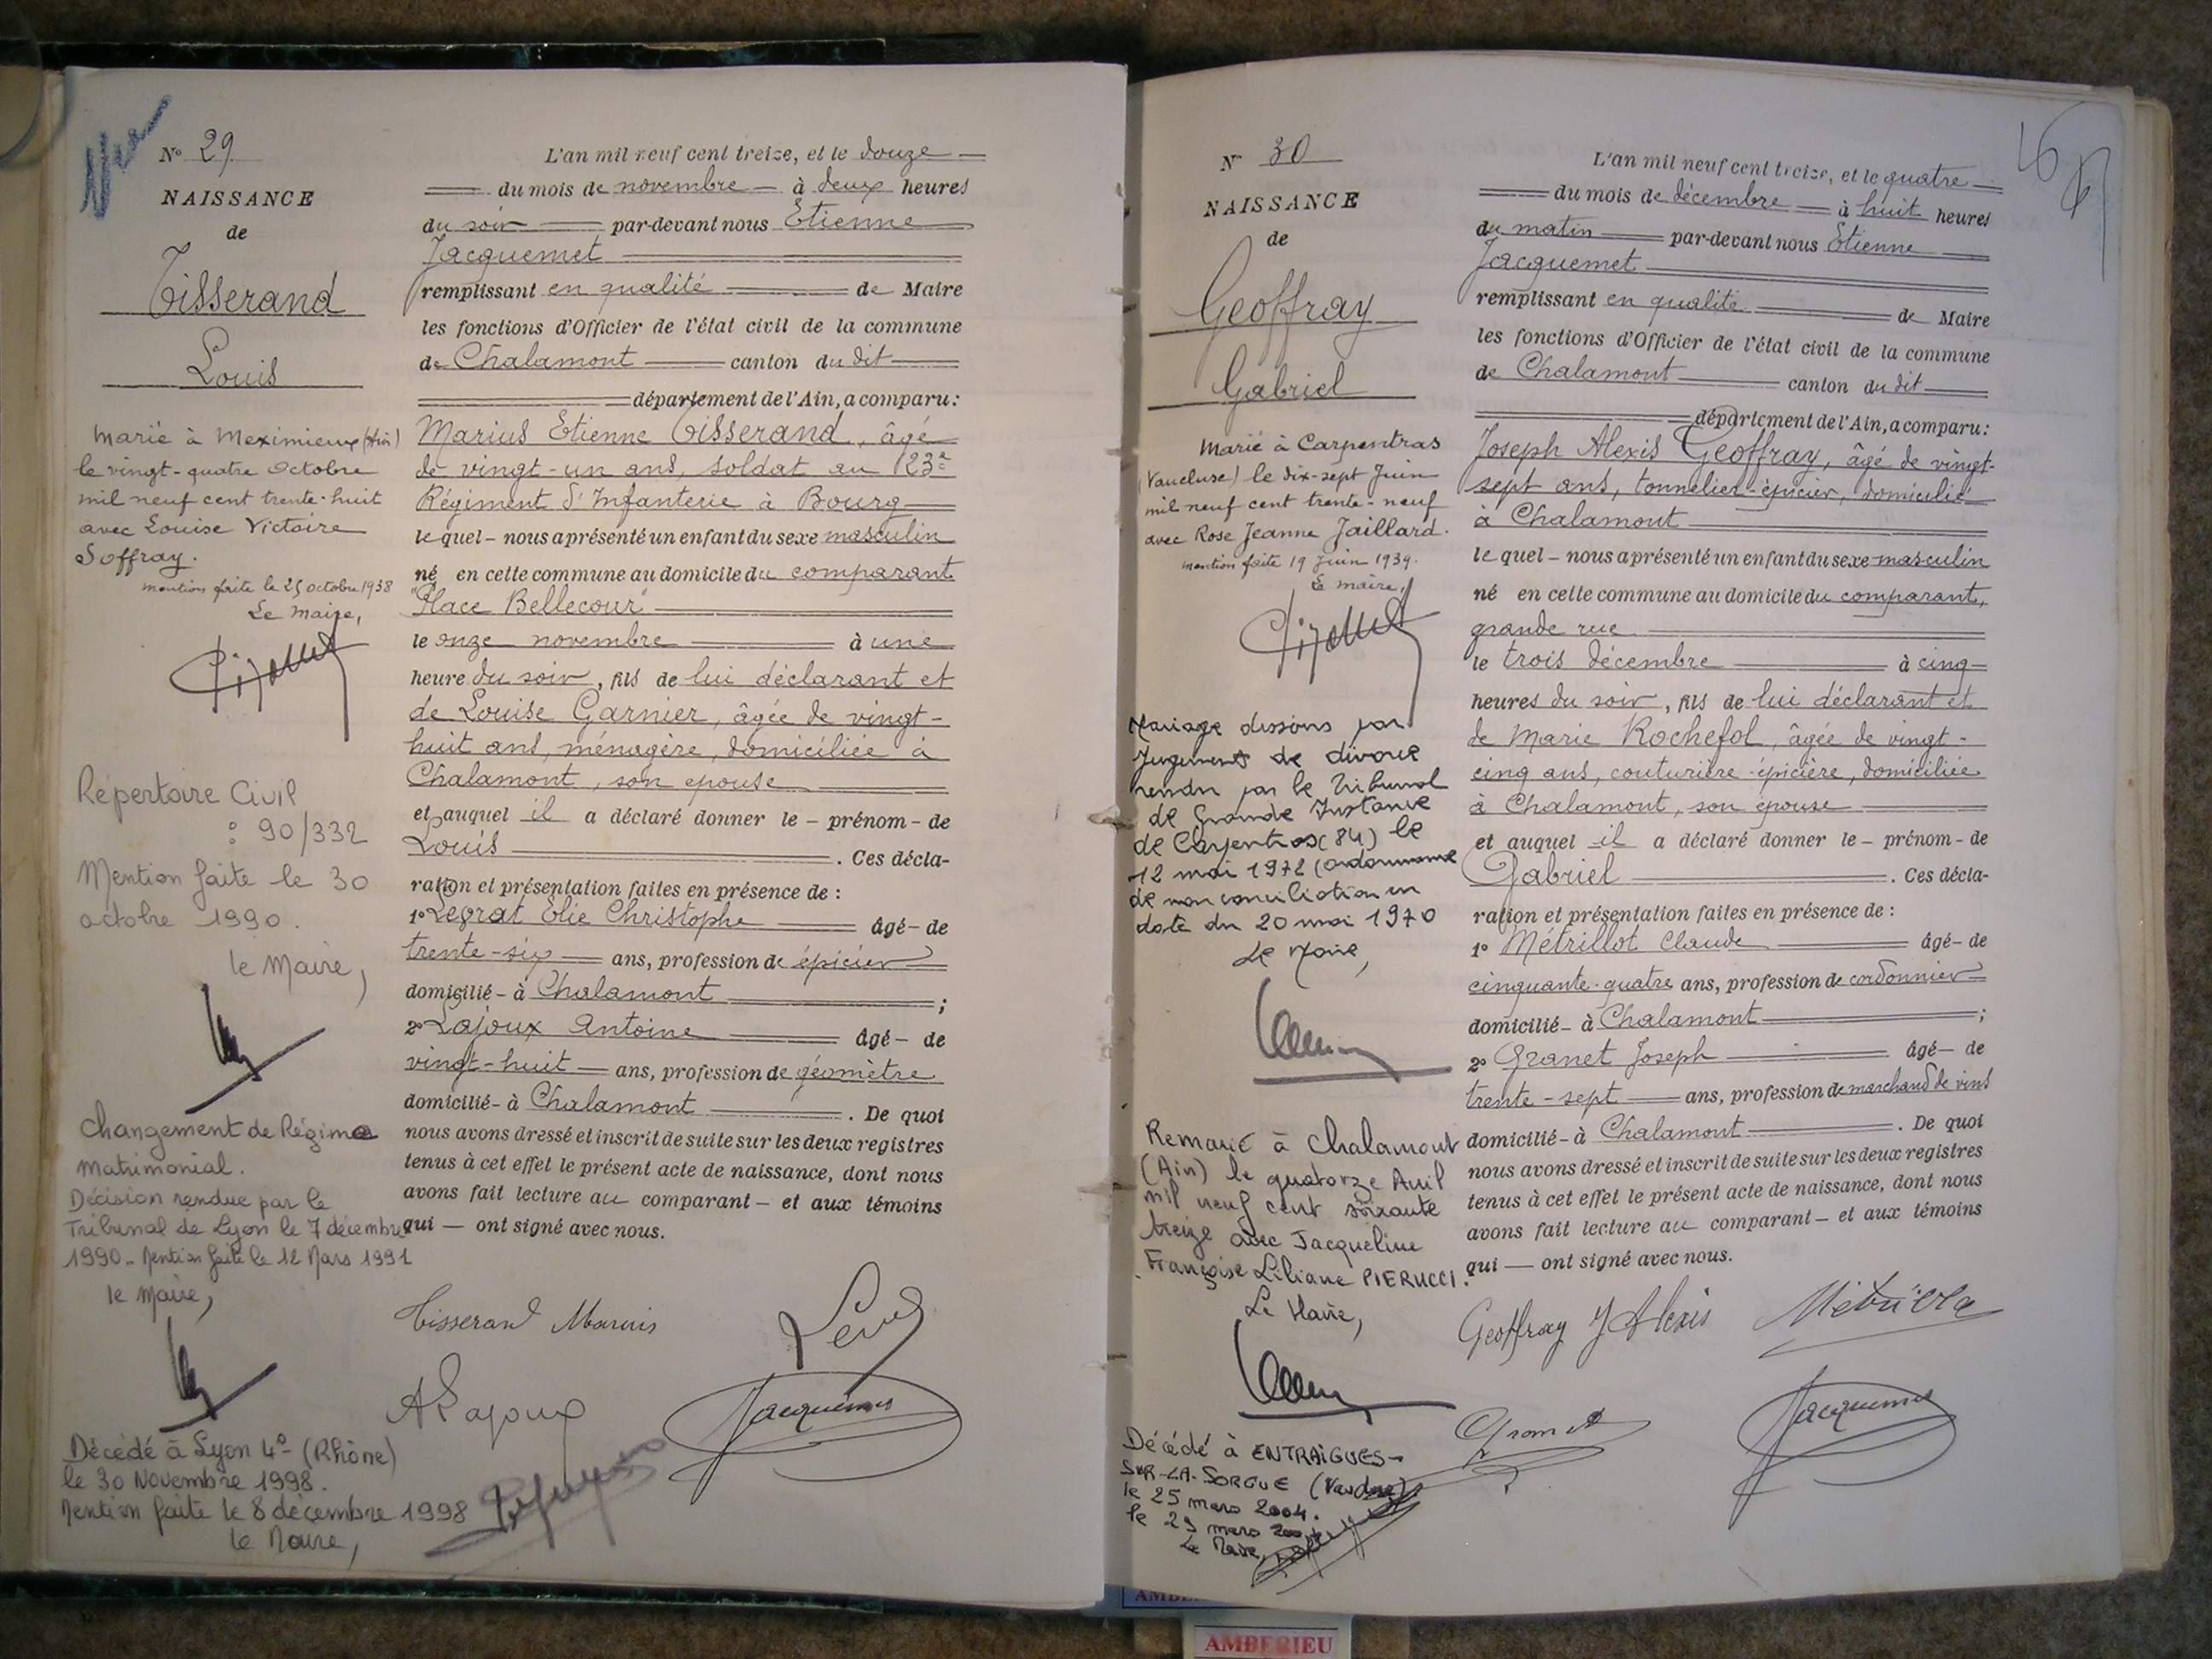 N° 29
NAISSANCE
de
Tisserand
Louis
Marié à Meximieux (Ain)
le vingt-quatre Octobre
mil neuf cent trente-huit
avec Louise Victoire
Soffray.
mention faite le 25 octobre 1938
Le Maire,
Répertoire Civil
: 90/332
Mention faite le 30
octobre 1990.
le Maire,
Changement de Régime
Matrimonial.
Décision rendue par le
Tribunal de Lyon le 7 décembre
1990. Mention faite le 12 Mars 1991
le Maire,
Décédé à Lyon 4e (Rhône)
le 30 Novembre 1998.
Mention faite le 8 décembre 1998
le Maire,
L'an mil neuf cent treize, et le douze
du mois de novembre à deux heures
du soir par-devant nous Etienne
Jacquemet
remplissant en qualité de Maire
les fonctions d'Officier de l'état civil de la commune
de Chalamont canton du dit
département de l'Ain, a comparu:
Marius Etienne Tisserand, âgé
de vingt-un ans, soldat au 23e
Régiment d'Infanterie à Bourg
lequel - nous a présenté un enfant du sexe masculin
né en cette commune au domicile du comparant
"Place Bellecour"
le onze novembre à une
heure du soir, fils de lui déclarant et
de Louise Garnier, âgée de vingt-
huit ans, ménagère, domiciliée à
Chalamont, son épouse
et auquel il a déclaré donner le - prénom - de
Louis . Ces décla-
ration et présentation faites en présence de :
1° Legrat Elie Christophe âgé - de
trente-six ans, profession de épicier
domicilié - à Chalamont ;
2° Lajoux Antoine âgé - de
vingt-huit ans, profession de géomètre
domicilié - à Chalamont . De quoi
nous avons dressé et inscrit de suite sur les deux registres
tenus à cet effet le présent acte de naissance, dont nous
avons fait lecture au comparant - et aux témoins
qui — ont signé avec nous.
Tisserand Marius
A Lajoux
Jacquemet
N° 30
NAISSANCE
de
Geoffray
Gabriel
Marié à Carpentras
(Vaucluse) le dix-sept Juin
mil neuf cent trente-neuf
avec Rose Jeanne Jaillard.
mention faite 19 Juin 1939.
Le maire,
Mariage dissous par
Jugement de divorce
rendu par le Tribunal
de Grande Instance
de Carpentras (84) le
12 mai 1972 (Ordonnance
de non conciliation en
date du 20 mai 1970
Le Maire,
Remarié à Chalamont
(Ain) le quatorze Avril
mil neuf cent soixante
treize avec Jacqueline
Françoise Liliane PIERUCCI.
Le Maire,
Décédé à ENTRAIGUES-
SUR-LA-SORGUE (Vaucluse)
le 25 mars 2004.
le 29 mars 2004
Le Maire,
L'an mil neuf cent treize, et le quatre
du mois de décembre à huit heures
du matin par-devant nous Etienne
Jacquemet
remplissant en qualité de Maire
les fonctions d'Officier de l'état civil de la commune
de Chalamont canton du dit
département de l'Ain, a comparu:
Joseph Alexis Geoffray, âgé de vingt-
sept ans, tonnelier-épicier, domicilié
à Chalamont
lequel - nous a présenté un enfant du sexe masculin
né en cette commune au domicile du comparant,
grande rue
le trois décembre à cinq
heures du soir, fils de lui déclarant et
de Marie Rochefol, âgée de vingt-
cinq ans, couturière-épicière, domiciliée
à Chalamont, son épouse
et auquel il a déclaré donner le - prénom - de
Gabriel . Ces décla-
ration et présentation faites en présence de :
1° Métrillot Claude âgé - de
cinquante-quatre ans, profession de cordonnier
domicilié - à Chalamont ;
2° Granet Joseph âgé - de
trente-sept ans, profession de marchand de vins
domicilié - à Chalamont . De quoi
nous avons dressé et inscrit de suite sur les deux registres
tenus à cet effet le présent acte de naissance, dont nous
avons fait lecture au comparant - et aux témoins
qui — ont signé avec nous.
Geoffray J Alexis
Granet
Jacquemet
AMBERIEU